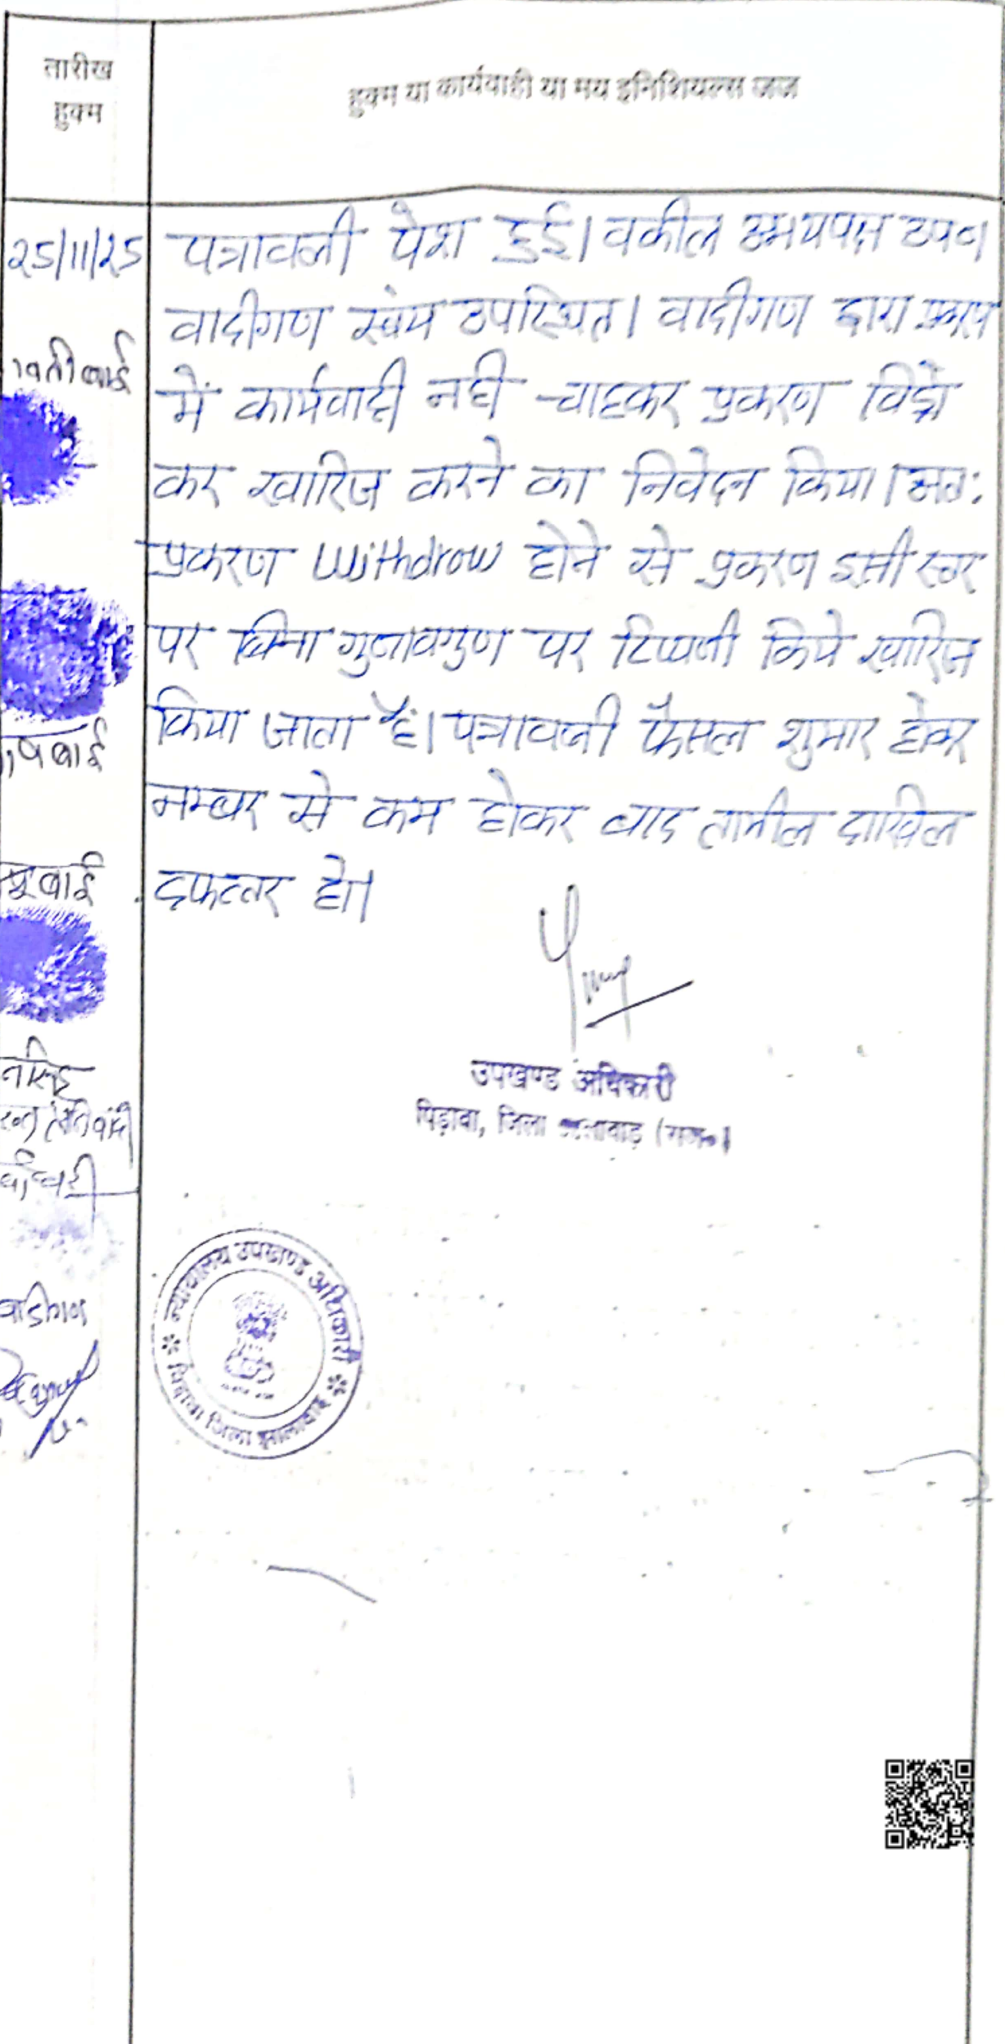 तारीख
हुक्म
हुक्म या कार्यवाही या मय इनिशियल्स जज
25/11/25
पत्रावली पेश हुई। वकील उभयपक्ष उप०।
वादीगण स्वंय उपस्थित। वादीगण द्वारा प्रकरण
में कार्यवाही नही चाहकर प्रकरण विड्रो
कर खारिज करने का निवेदन किया। अतः
प्रकरण Withdrow होने से प्रकरण इसी स्तर
पर बिना गुणावगुण पर टिप्पणी किये खारिज
किया जाता है। पत्रावली फैसल शुमार होकर
नम्बर से कम होकर बाद तामील दाखिल
दफ्तर हो।
उपखण्ड अधिकारी
पिड़ावा, जिला झालावाड़ (राज०)
न्यायालय उपखण्ड अधिकारी
पिड़ावा जिला झालावाड़
बाई
बाई